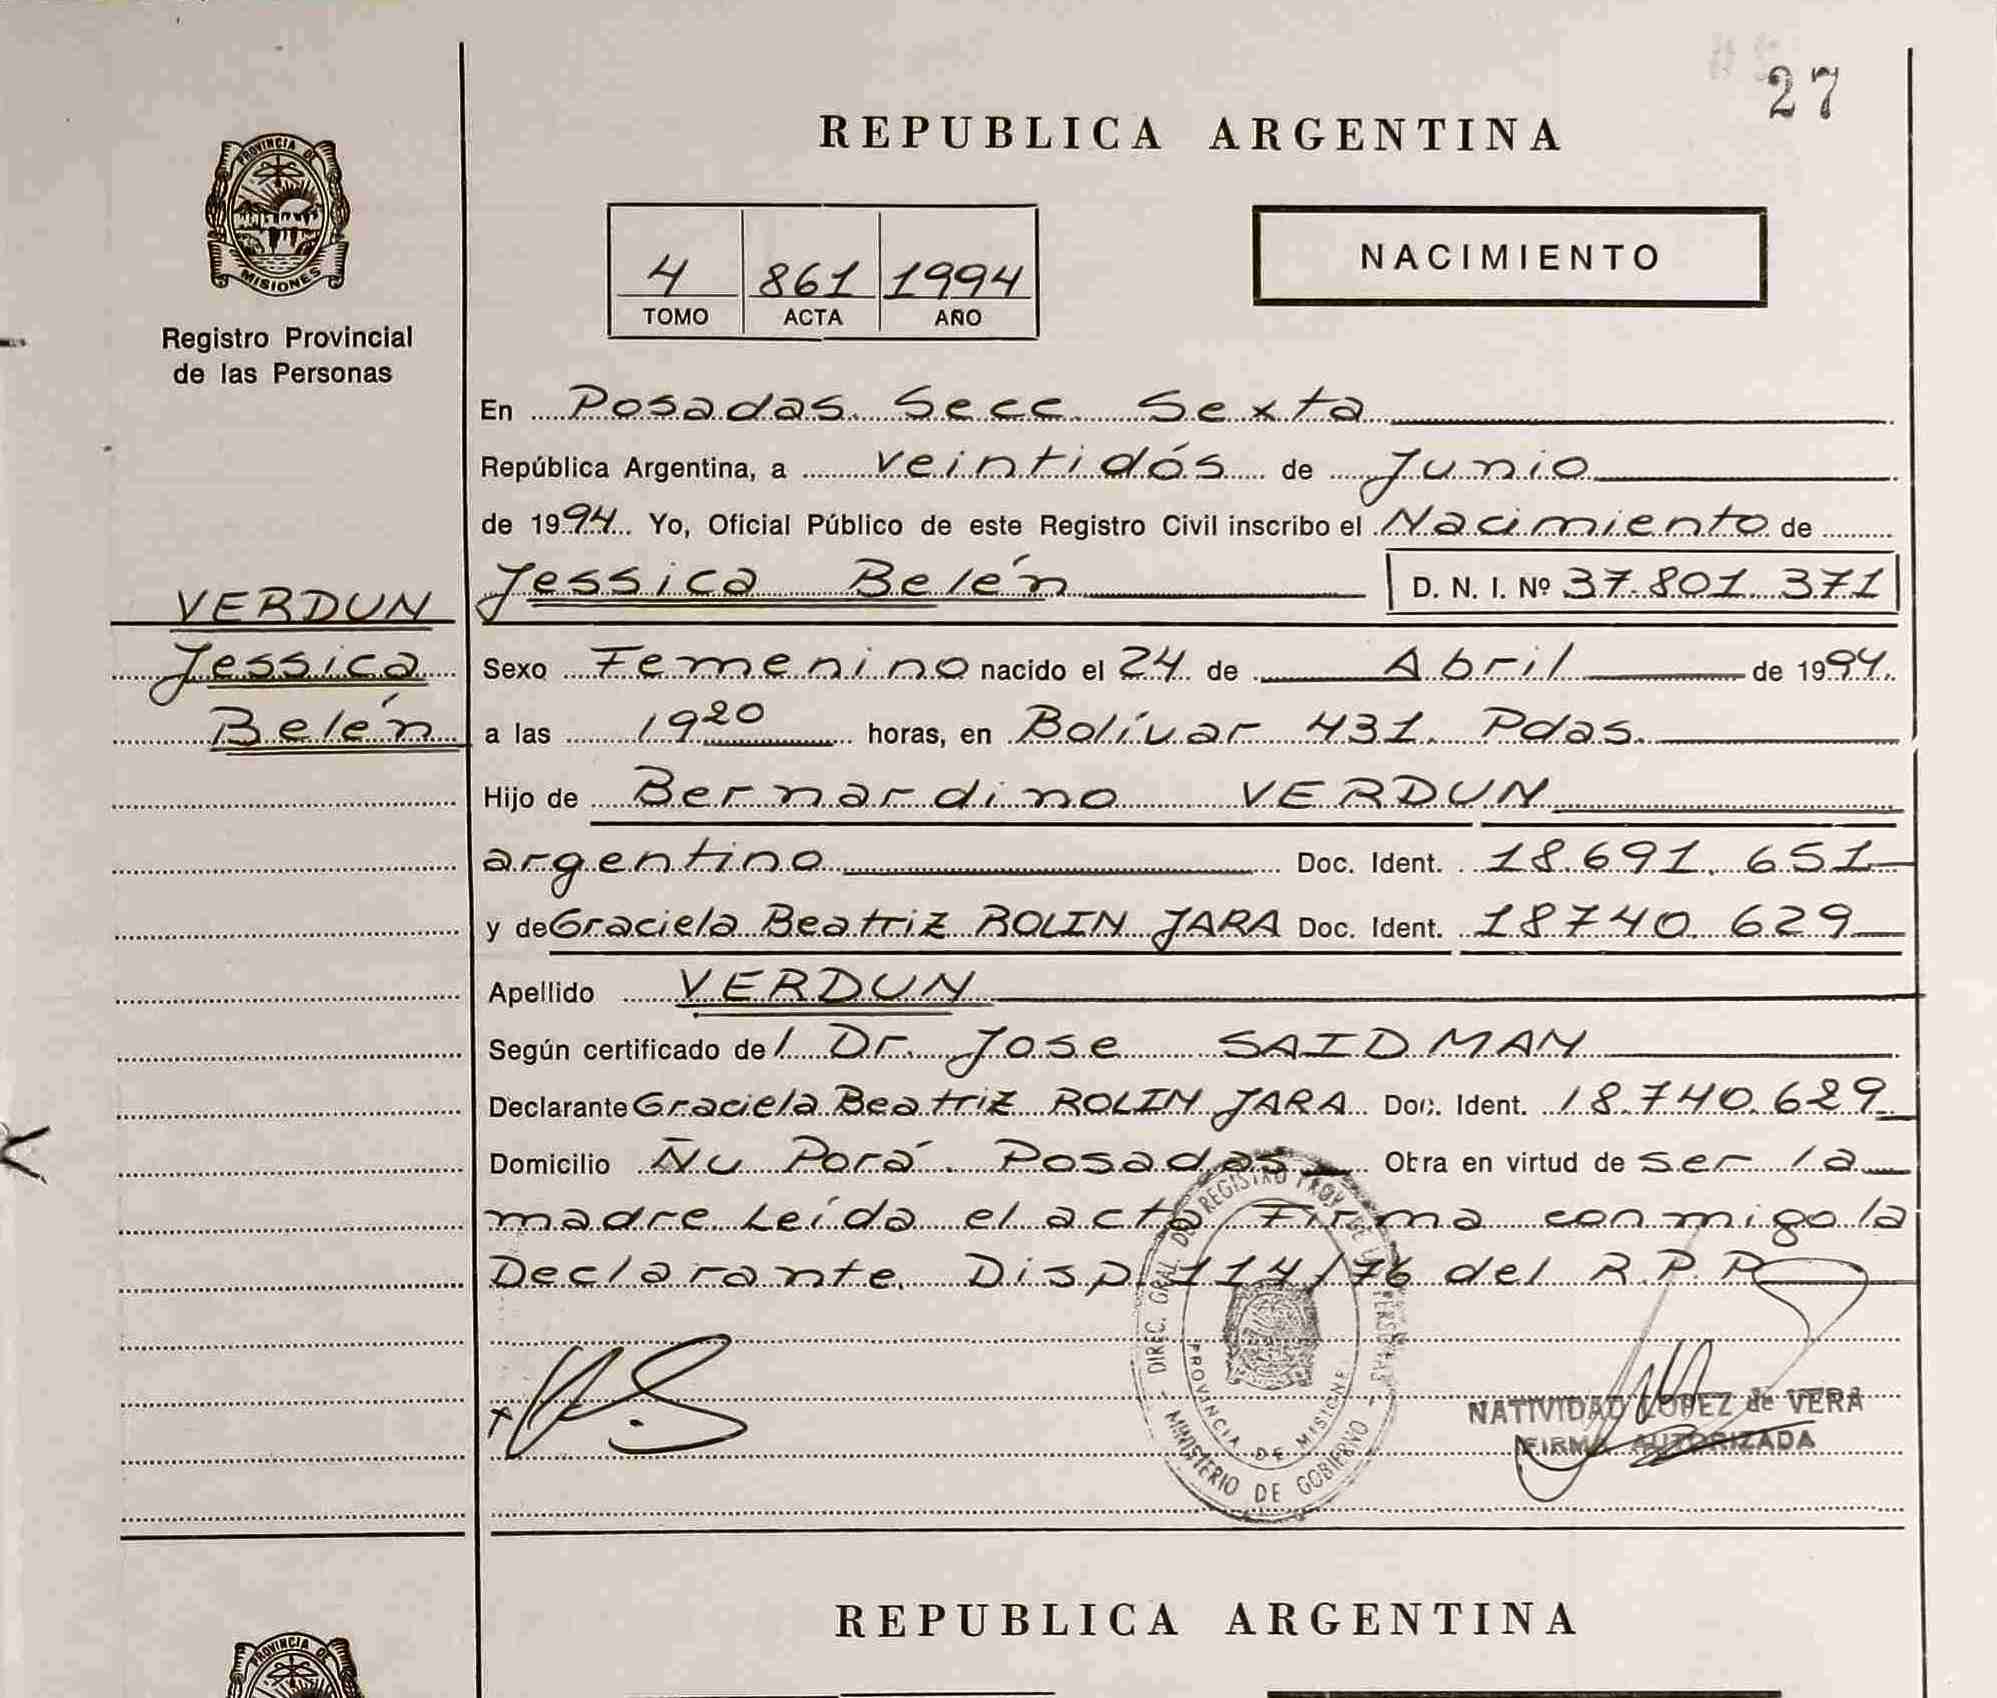 27
REPUBLICA ARGENTINA
PROVINCIA DE
MISIONES
Registro Provincial
de las Personas
4 861 1994
TOMO ACTA AÑO
NACIMIENTO
En Posadas. Secc. Sexta
República Argentina, a veintidós de Junio
de 1994. Yo, Oficial Público de este Registro Civil inscribo el Nacimiento de
Jessica Belén D. N. I. Nº 37.801.371
VERDUN
Jessica
Belén
Sexo Femenino nacido el 24 de Abril de 1994.
a las 19 20 horas, en Bolívar 431. Pdas.
Hijo de Bernardino VERDUN
argentino Doc. Ident. 18.691.651
y de Graciela Beatriz ROLIN JARA Doc. Ident. 18740.629
Apellido VERDUN
Según certificado del Dr. Jose SAIDMAN
Declarante Graciela Beatriz ROLIN JARA Doc. Ident. 18.740.629
Domicilio Ñu Porá. Posadas Obra en virtud de ser la
madre Leída el acta Firma conmigo la
Declarante. Disp. 114/76 del R.P.P.
DIREC. GRAL. DE REGISTRO PROV. DE
PROVINCIA DE MISIONES
MINISTERIO DE GOBIERNO
NATIVIDAD LOPEZ de VERA
FIRMA AUTORIZADA
REPUBLICA ARGENTINA
PROVINCIA DE